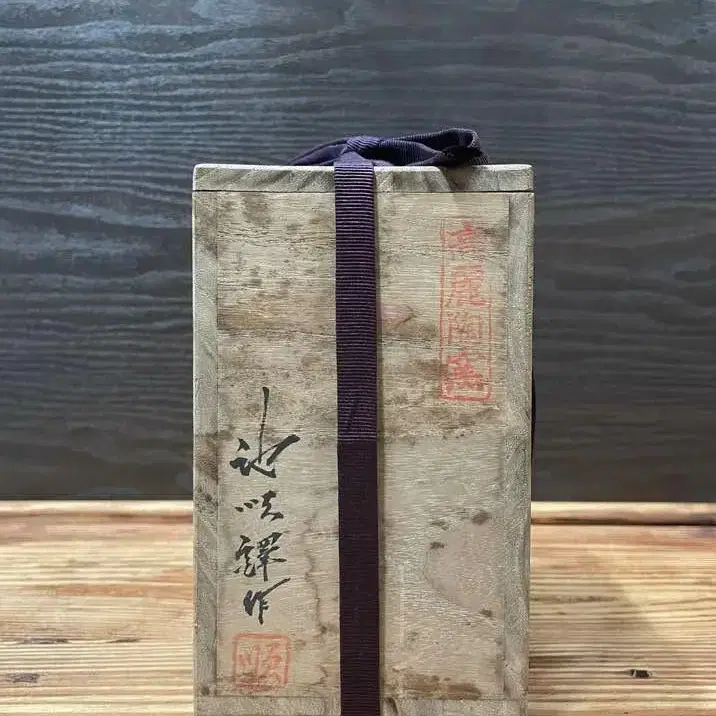 高麗陶窯
池順鐸作
順